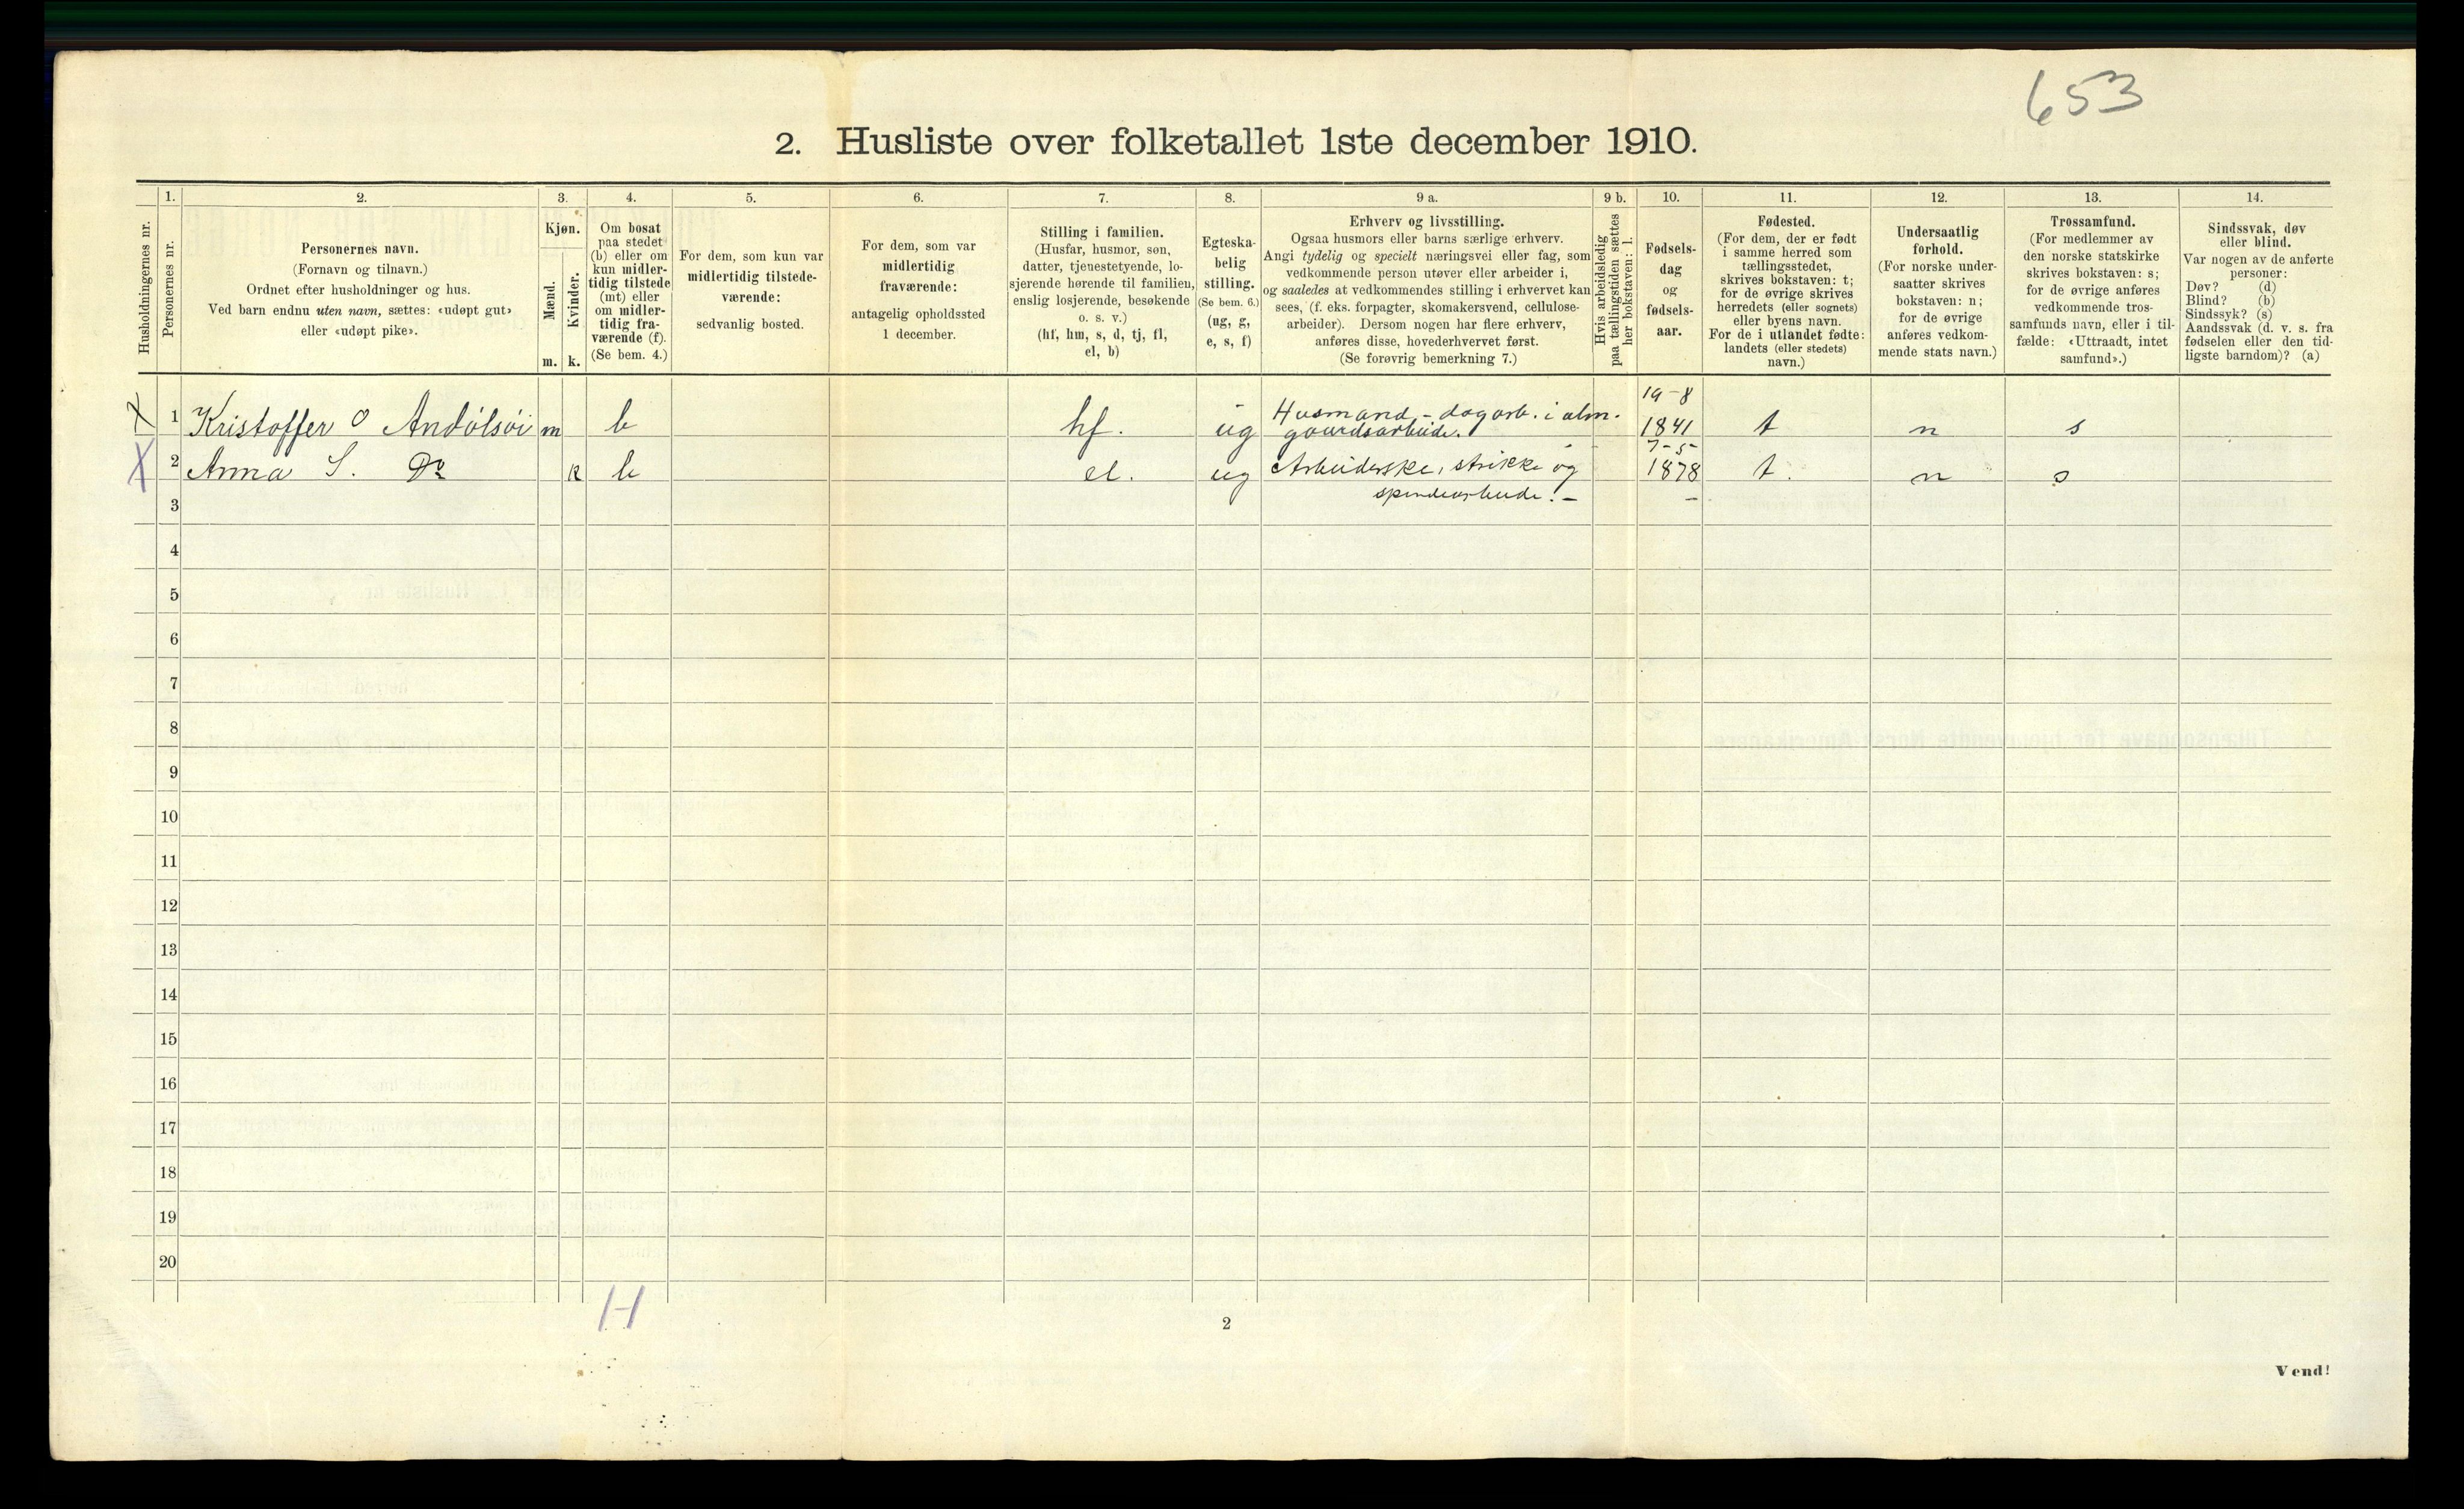 653
2. Husliste over folketallet 1ste december 1910.
Husholdningernes nr.
1.
Personernes nr.
2.
Personernes navn.
(Fornavn og tilnavn.)
Ordnet efter husholdninger og hus.
Ved barn endnu uten navn, sættes: «udøpt gut»
eller «udøpt pike».
3.
Kjøn.
Mænd.
m.
Kvinder.
k.
4.
Om bosat
paa stedet
(b) eller om
kun midler-
tidig tilstede
(mt) eller
om midler-
tidig fra-
værende (f).
(Se bem. 4.)
5.
For dem, som kun var
midlertidig tilstede-
værende:
sedvanlig bosted.
6.
For dem, som var
midlertidig
fraværende:
antagelig opholdssted
1 december.
7.
Stilling i familien.
(Husfar, husmor, søn,
datter, tjenestetyende, lo-
sjerende hørende til familien,
enslig losjerende, besøkende
o. s. v.)
(hf, hm, s, d, tj, fl,
el, b)
8.
Egteska-
belig
stilling.
(Se bem. 6.)
(ug, g,
e, s, f)
9 a.
Erhverv og livsstilling.
Ogsaa husmors eller barns særlige erhverv.
Angi tydelig og specielt næringsvei eller fag, som
vedkommende person utøver eller arbeider i,
og saaledes at vedkommendes stilling i erhvervet kan
sees, (f. eks. forpagter, skomakersvend, cellulose-
arbeider). Dersom nogen har flere erhverv,
anføres disse, hovederhvervet først.
(Se forøvrig bemerkning 7.)
9 b.
Hvis arbeidsledig
paa tællingstiden sættes
her bokstaven: l.
10.
Fødsels-
dag
og
fødsels-
aar.
11.
Fødested.
(For dem, der er født
i samme herred som
tællingsstedet,
skrives bokstaven: t;
for de øvrige skrives
herredets (eller sognets)
eller byens navn.
For de i utlandet fødte:
landets (eller stedets)
navn.)
12.
Undersaatlig
forhold.
(For norske under-
saatter skrives
bokstaven: n;
for de øvrige
anføres vedkom-
mende stats navn.)
13.
Trossamfund.
(For medlemmer av
den norske statskirke
skrives bokstaven: s;
for de øvrige anføres
vedkommende tros-
samfunds navn, eller i til-
fælde: «Uttraadt, intet
samfund».)
14.
Sindssvak, døv
eller blind.
Var nogen av de anførte
personer:
Døv? (d)
Blind? (b)
Sindssyk? (s)
Aandssvak (d. v. s. fra
fødselen eller den tid-
ligste barndom)? (a)
X 1 Kristoffer O Andólsói m b hf. ug Husmand - dagarb. i alm. 19-8
gaardsarbeide. 1841 t n s
X 2 Anna S. Do k b el. ug Arbeiderske, strikke og 7-5-
1878 t. n s
3 spindearbeide. -
4
5
6
7
8
9
10
11
12
13
14
15
16
17
18
19
20
H
2
Vend!